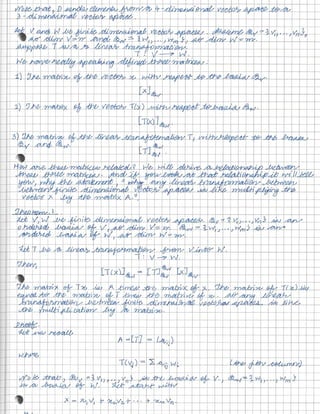 Note that, D sends elements from a 4-dimensional vector space to a
3-dimensional vector space.
Let V and W be finite dimensional vector spaces. Assume B_V = {v_1, ..., v_n},
so dim V = n and B_W = {w_1, ..., w_m}, so dim W = m.
Suppose T is a linear transformation
T: V → W.
We have really speaking defined three matrices.
1) The matrix of the vector x with respect to the basis B_V.
[x]_{B_V}
2) The matrix of the vector T(x) with respect to basis B_W.
[T(x)]_{B_W}
3) The matrix of the linear transformation T, with respect to the bases
B_V and B_W.
[T]
How are these matrices related? We will derive a relationship between
these three matrices, and if you look at that relationship it will tell
you, why the statement, "why any linear transformation between
finite dimensional vector spaces is like multiplying the
vector x by the matrix A".
Theorem 1.
Let V, W be finite dimensional vector spaces. B_V = {v_1, ..., v_n} is an
ordered basis of V, so dim V = n. B_W = {w_1, ..., w_m} is an
ordered basis of W, so dim W = m.
Let T be a linear transformation from V into W.
T: V → W.
Then,
[T(x)]_{B_W} = [T] [x]_{B_V}
The matrix of Tx is A times the matrix of x. The matrix of T(x) is
equal to the matrix of T times the matrix of x. So any linear
transformation between finite dimensional vector spaces is like
the multiplication by a matrix.
Proof:
Let us recall
A = [T] = (a_{ij})
where
T(v_j) = Σ a_{ij} w_i (the jth column)
Note that, B_V = {v_1, ..., v_n} is the basis of V, B_W = {w_1, ..., w_m}
is a basis of W. Let start with
x = x_1v_1 + x_2v_2 + ... + x_nv_n.